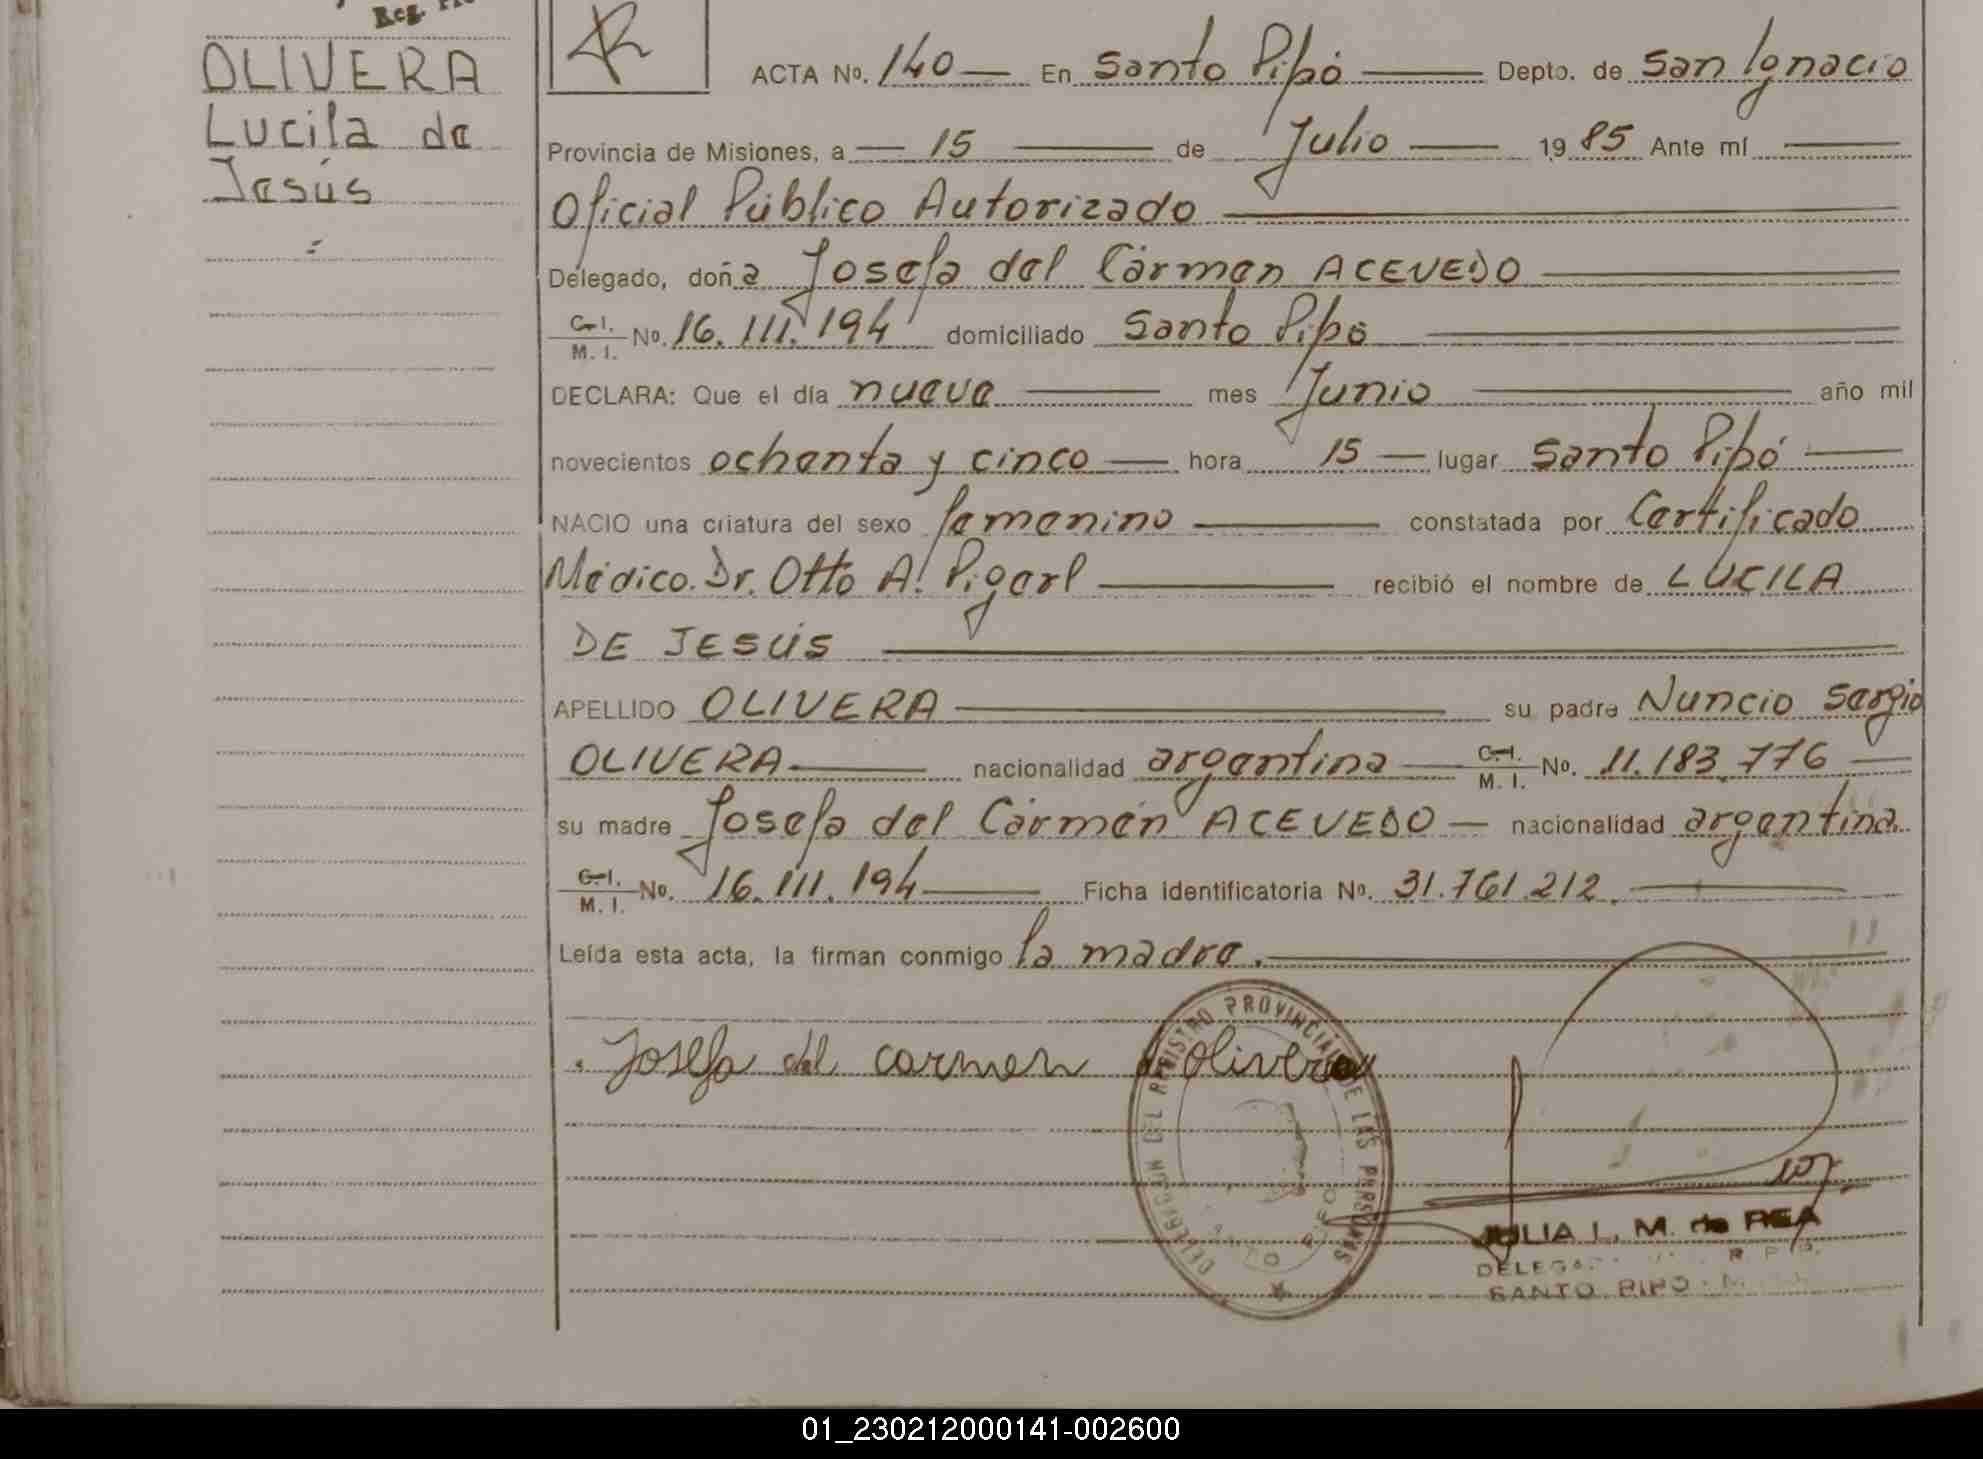 OLIVERA
Lucila de
Jesús
ACTA No. 140 En Santo Pipó Depto. de San Ignacio
Provincia de Misiones, a 15 de Julio 19 85 Ante mí
Oficial Público Autorizado
Delegado, doña Josefa del Cármen ACEVEDO
C.I.
M. I. No. 16.111.194 domiciliado Santo Pipó
DECLARA: Que el día nueve mes Junio año mil
novecientos ochenta y cinco hora 15 lugar Santo Pipó
NACIO una criatura del sexo femenino constatada por Certificado
Médico. Dr. Otto A. Pigerl recibió el nombre de LUCILA
DE JESÚS
APELLIDO OLIVERA su padre Nuncio Sergio
OLIVERA nacionalidad argentina C.I. M. I. No. 11.183.776
su madre Josefa del Cármen ACEVEDO nacionalidad argentina
C.I.
M. I. No. 16.111.194 Ficha identificatoria No. 31.761.212.
Leída esta acta, la firman conmigo la madre.
Josefa del carmen d olivera
DELEGACION DEL REGISTRO PROVINCIAL DE LAS PERSONAS
SANTO PIPO
JULIA L. M. de REA
SANTO PIPO
01_230212000141-002600